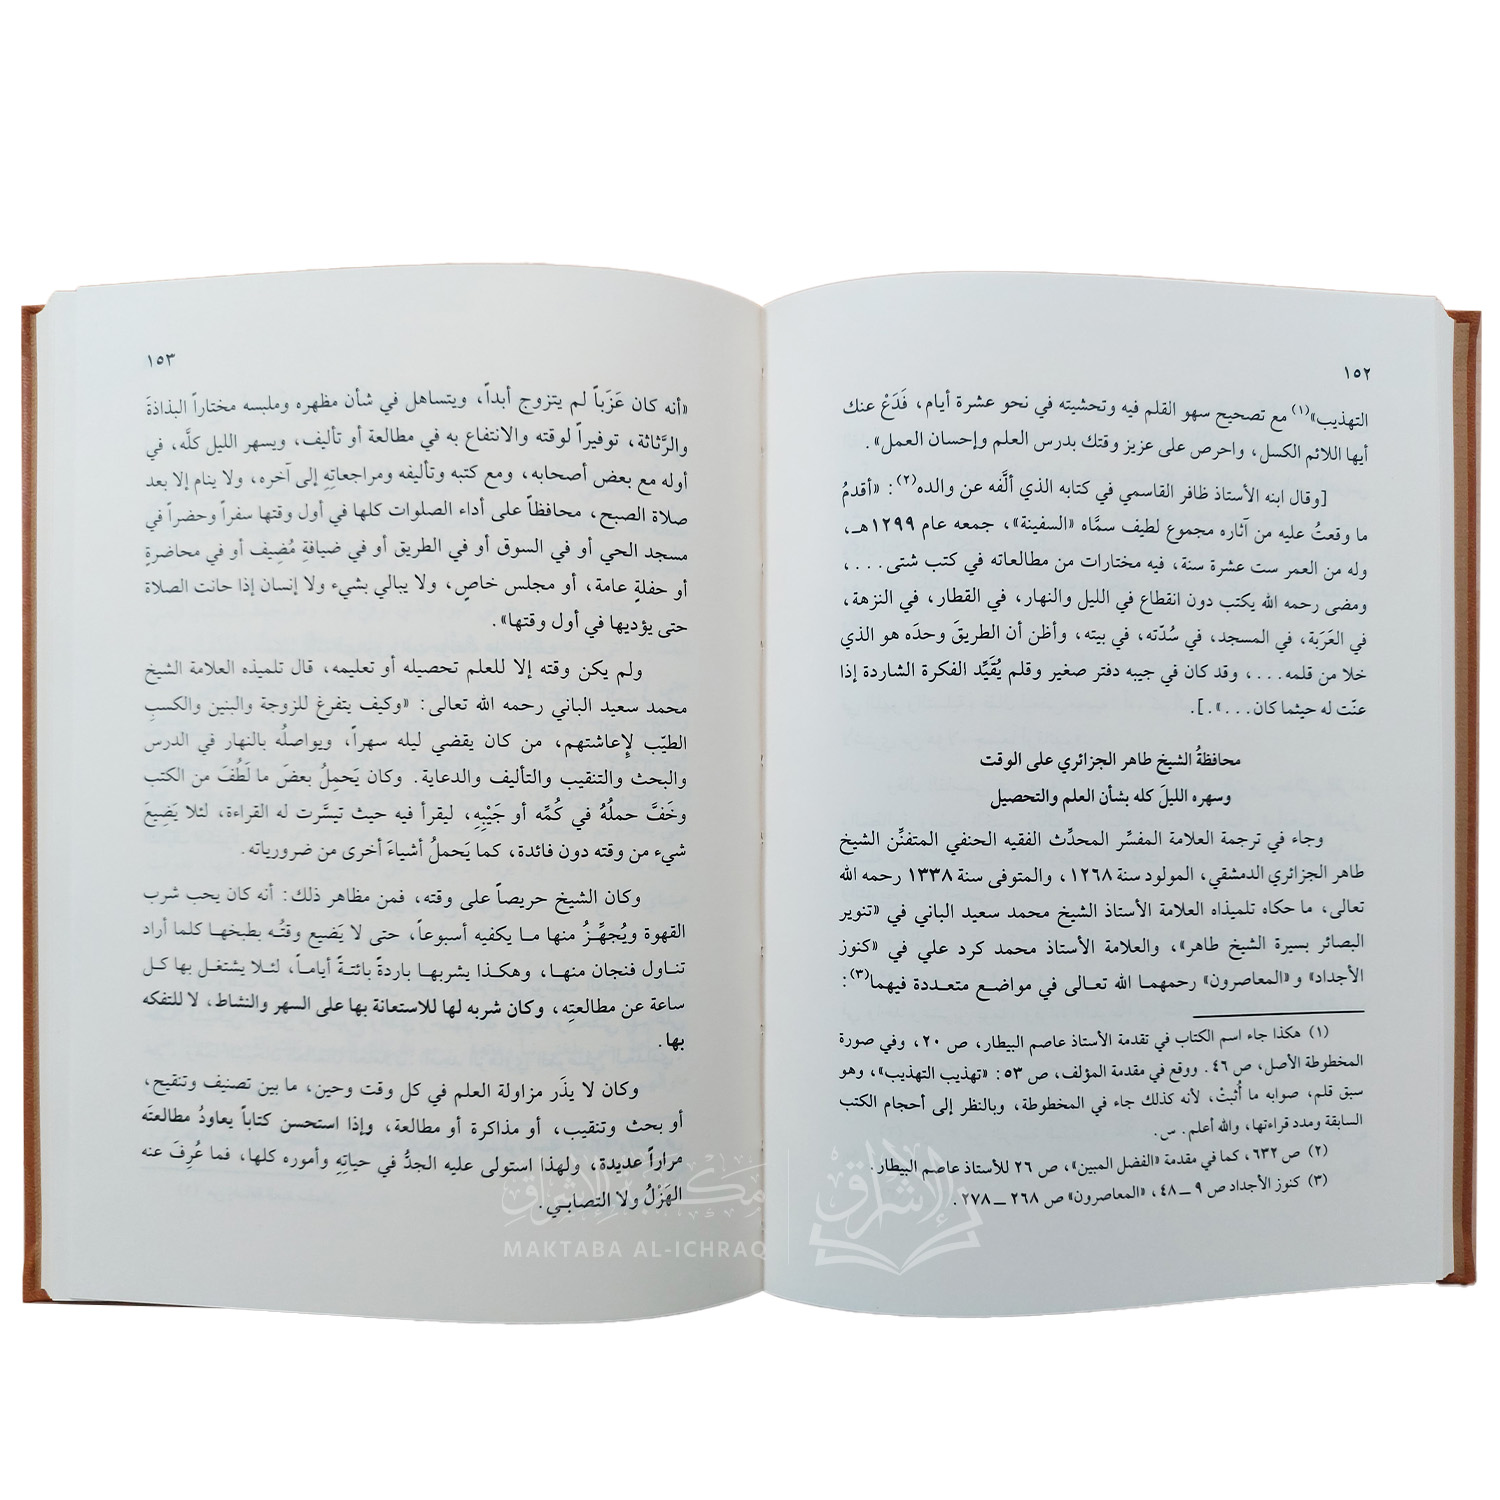 ١٥٢
التهذيب»(١) مع تصحيح سهو القلم فيه وتحشيته في نحو عشرة أيام، فَدَعْ عنك
أيها اللائم الكسل، واحرص على عزيز وقتك بدرس العلم وإحسان العمل».
[وقال ابنه الأستاذ ظافر القاسمي في كتابه الذي ألَّفه عن والده(٢): «أقدمُ
ما وقعتُ عليه من آثاره مجموع لطيف سمَّاه «السفينة»، جمعه عام ١٢٩٩هـ،
وله من العمر ست عشرة سنة، فيه مختارات من مطالعاته في كتب شتى...،
ومضى رحمه الله يكتب دون انقطاع في الليل والنهار، في القطار، في النزهة،
في العَرَبة، في المسجد، في سُدّته، في بيته، وأظن أن الطريقَ وحدَه هو الذي
خلا من قلمه...، وقد كان في جيبه دفتر صغير وقلم يُقَيِّد الفكرة الشاردة إذا
عنّت له حيثما كان...».].
محافظةُ الشيخ طاهر الجزائري على الوقت
وسهره الليلَ كله بشأن العلم والتحصيل
وجاء في ترجمة العلامة المفسِّر المحدِّث الفقيه الحنفي المتفنِّن الشيخ
طاهر الجزائري الدمشقي، المولود سنة ١٢٦٨، والمتوفى سنة ١٣٣٨ رحمه الله
تعالى، ما حكاه تلميذاه العلامة الأستاذ الشيخ محمد سعيد الباني في «تنوير
البصائر بسيرة الشيخ طاهر»، والعلامة الأستاذ محمد كرد علي في «كنوز
الأجداد» و «المعاصرون» رحمهما الله تعالى في مواضع متعددة فيهما(٣):
(١) هكذا جاء اسم الكتاب في تقدمة الأستاذ عاصم البيطار، ص ٢٠، وفي صورة
المخطوطة الأصل، ص ٤٦. ووقع في مقدمة المؤلف، ص ٥٣: «تهذيب التهذيب»، وهو
سبق قلم، صوابه ما أُثبتْ، لأنه كذلك جاء في المخطوطة، وبالنظر إلى أحجام الكتب
السابقة ومدد قراءتها، والله أعلم. س.
(٢) ص ٦٣٢، كما في مقدمة «الفضل المبين»، ص ٢٦ للأستاذ عاصم البيطار.
(٣) كنوز الأجداد ص ٩ ــ ٤٨، «المعاصرون» ص ٢٦٨ ــ ٢٧٨.
١٥٣
«أنه كان عَزَباً لم يتزوج أبداً، ويتساهل في شأن مظهره وملبسه مختاراً البذاذةَ
والرَّثاثة، توفيراً لوقته والانتفاع به في مطالعة أو تأليف، ويسهر الليل كلَّه، في
أوله مع بعض أصحابه، ومع كتبه وتأليفه ومراجعاتِهِ إلى آخره، ولا ينام إلا بعد
صلاة الصبح، محافظاً على أداء الصلوات كلها في أول وقتها سفراً وحضراً في
مسجد الحي أو في السوق أو في الطريق أو في ضيافةِ مُضِيف أو في محاضرةٍ
أو حفلةٍ عامة، أو مجلس خاصٍ، ولا يبالي بشيء ولا إنسان إذا حانت الصلاة
حتى يؤديها في أول وقتها».
ولم يكن وقته إلا للعلم تحصيله أو تعليمه، قال تلميذه العلامة الشيخ
محمد سعيد الباني رحمه الله تعالى: «وكيف يتفرغ للزوجة والبنين والكسبِ
الطيّب لإِعاشتهم، من كان يقضي ليله سهراً، ويواصلُه بالنهار في الدرس
والبحث والتنقيب والتأليف والدعاية. وكان يَحمِلُ بعضَ ما لَطُفَ من الكتب
وخَفَّ حملُهُ في كُمِّه أو جَيْبِهِ، ليقرأ فيه حيث تيسَّرت له القراءة، لئلا يَضِيعَ
شيء من وقته دون فائدة، كما يَحملُ أشياءَ أخرى من ضرورياته.
وكان الشيخ حريصاً على وقته، فمن مظاهر ذلك: أنه كان يحب شرب
القهوة ويُجهِّزُ منها ما يكفيه أسبوعاً، حتى لا يَضيع وقتُه بطبخها كلما أراد
تناول فنجان منها، وهكذا يشربها باردةً بائتةً أياماً، لئلا يشتغل بها كل
ساعة عن مطالعتِه، وكان شربه لها للاستعانة بها على السهر والنشاط، لا للتفكه
بها.
وكان لا يذَر مزاولة العلم في كل وقت وحين، ما بين تصنيف وتنقيح،
أو بحث وتنقيب، أو مذاكرة أو مطالعة، وإذا استحسن كتاباً يعاودُ مطالعتَه
مراراً عديدة، ولهذا استولى عليه الجدُّ في حياتِهِ وأموره كلها، فما عُرِفَ عنه
الهَزْلُ ولا التصابي.
مكتبة الإشراق
MAKTABA AL-ICHRAQ
الإشراق